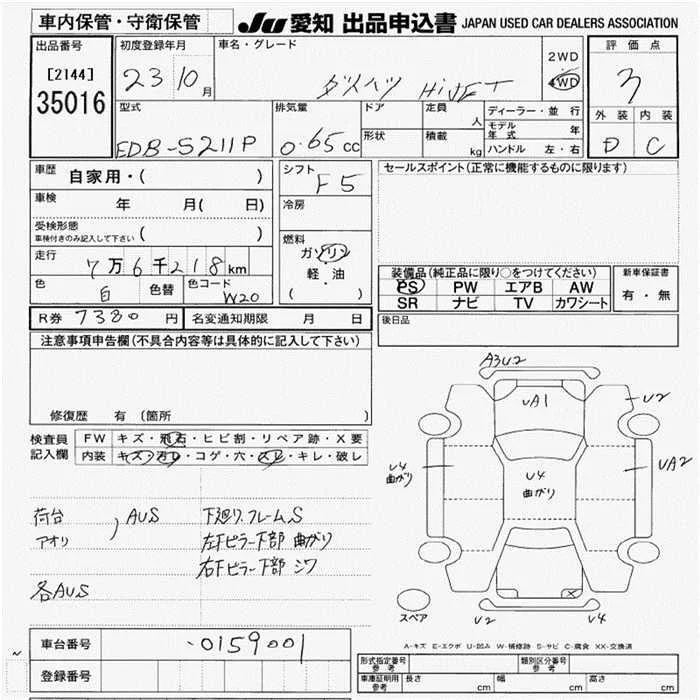 車内保管・守衛保管
JU 愛知 出品申込書 JAPAN USED CAR DEALERS ASSOCIATION
出品番号 初度登録年月 車名・グレード 評価点
[2144] 23 10 月 ダイハツ HiJET 2WD 4WD 3
35016
型式 排気量 ドア 定員 人 ディーラー・並行 外装 内装
EDB-S211P 0.65cc 形状 積載 kg モデル年式 年 D C
ハンドル 左・右
車歴 自家用・( ) シフト F5 セールスポイント(正常に機能するものに限ります)
車検 年 月( 日) 冷房
受検形態
車検付きのみ記入して下さい ( )
走行 7万6千218km 燃料 ガソリン
軽・油
( )
色 白 色替 色コード W20
装備品(純正品に限り○をつけてください) 新車保証書
PS PW エアB AW 有・無
SR ナビ TV カワシート
R券 7380 円 名変通知期限 月 日 後日品
注意事項申告欄(不具合内容等は具体的に記入して下さい)
修復歴 有 (箇所 )
検査員 FW キズ・飛石・ヒビ割・リペア跡・X要
記入欄 内装 キズ・汚レ・コゲ・穴・スレ・キレ・破レ
A3U2
UA1
U2
U4
曲がり
U4
曲がり
UA2
荷台 , AUS 下廻り.フレームS
アオリ 左下ピラー下部 曲がり
右下ピラー下部 シワ
各AUS
X
スペア U2 U4
車台番号 -0159001
A-キズ E-エクボ U-凹み W-補修跡 S-サビ C-腐食 XX-交換済
登録番号
形式指定番号 参考 類別区分番号 参考
車庫証明用 参考 長さ cm 幅 cm 高さ cm